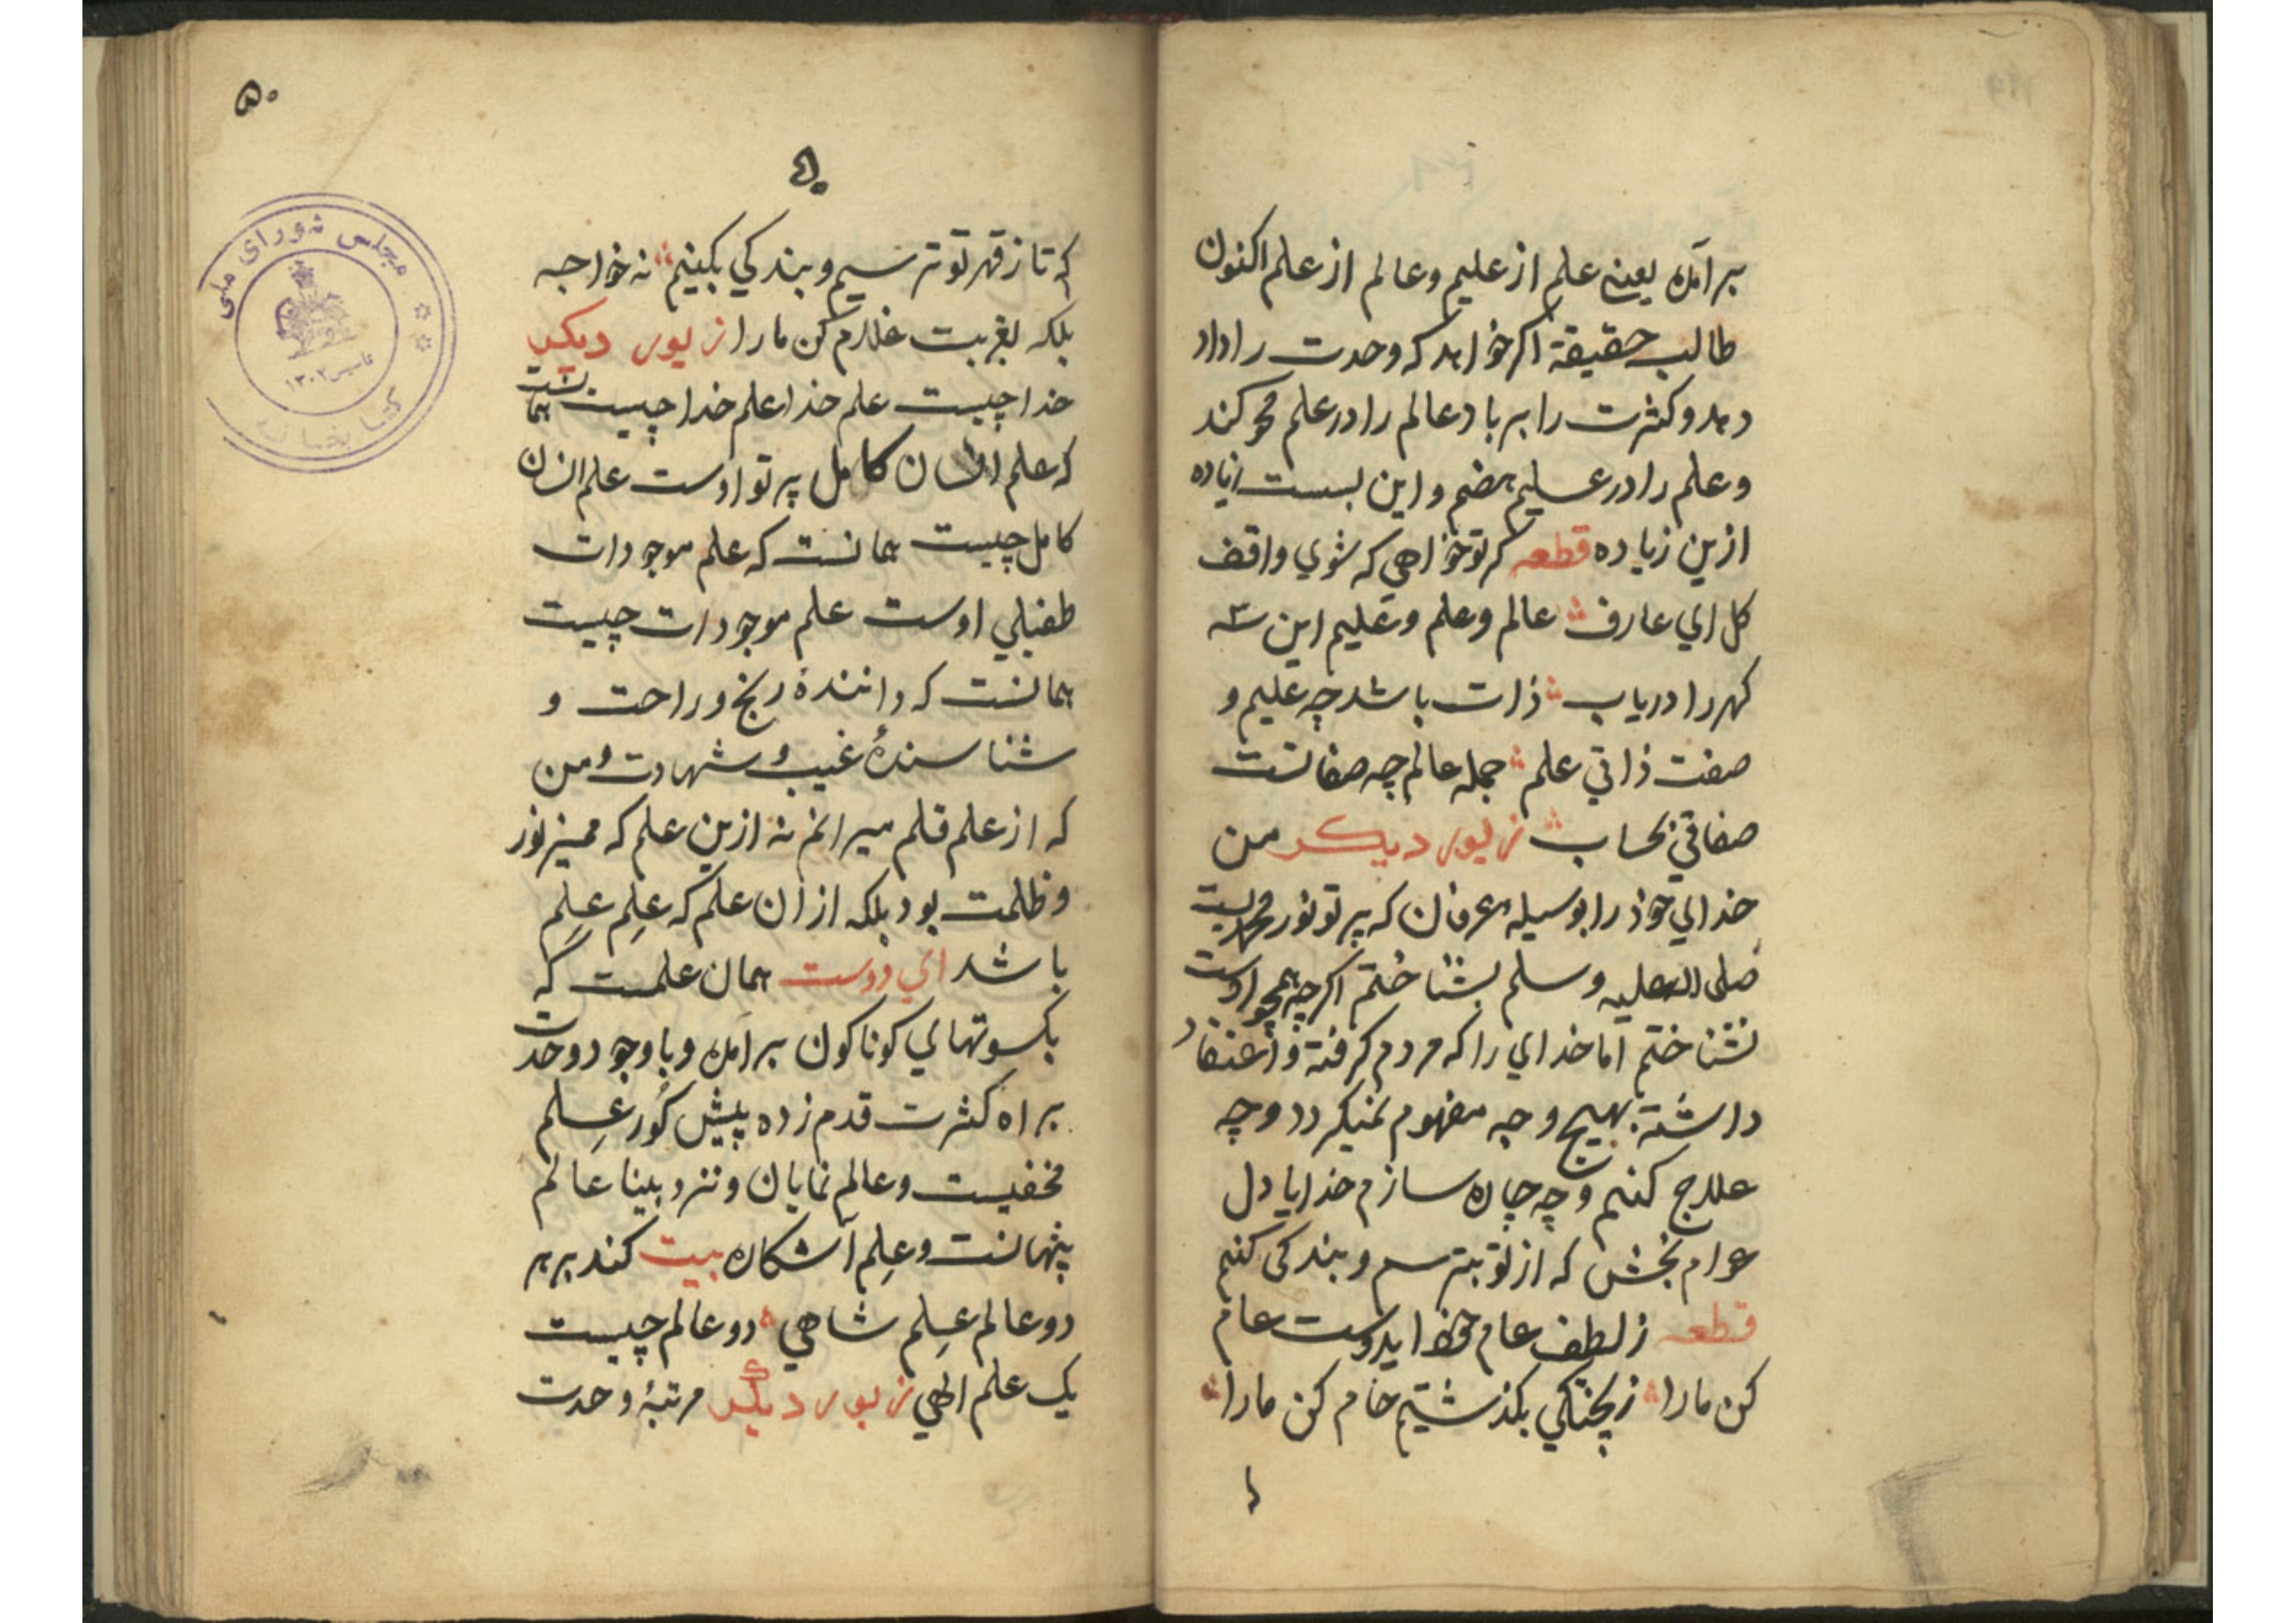 برآمده یعنے علم از علیم و عالم از علم اکنون
طالب حقیقة اکر خواهد که وحدت را داد
دهد و کثرت را بر باد عالم را در علم محو کند
و علم را در علیم هضم و این بست
ازین زیاده قطعه کر تو خواهي که شوي واقف
کل اي عارف عالم و علم و علیم این سه
کهر را دریاب ذات باشد چه علیم و
صفت ذاتي علم جمله عالم چه صفاتست
صفاتي بحساب زیور دیکر من
خداي خود را بوسیله عرفان که پرتو نور محمدیست
صلی الله علیه و سلم بشناختم اکرچه همچو اوست
نشناختم اما خداي را که مردم کرفتة و اعتقاد
داشتة بهیچ وجه مفهوم نمیکردد و چه
علاج کنم و چه چاره سازم خدایا دل
عوام بخش که از تو بترسم و بندکی کنم
قطعه ز لطف عام خود ایدوست عام
کن مارا ز پختکي بکذشتیم خام کن مارا
۵۰
۵۰
که تا ز قهر تو ترسیم و بندکي بکنیم نه خواجه
بلکه بغربت غلام کن مارا زیور دیکر
خدا چیست علم خدا علم خدا چیست همانست
که علم انسان کامل پرتو اوست علم انسان
کامل چیست همانست که علم موجودات
طفیلي اوست علم موجودات چیست
همانست که دانندهٔ رنج و راحت و
شناسندهٔ غیب و شهادت و من
که از علم قلم میرانم نه ازین علم که ممیز نور
و ظلمت بود بلکه از ان علم که عِلمِ عِلمِ
باشد اي دوست همان علمست که
بکسوتهاي کوناکون برآمده و با وجود وحدت
براه کثرت قدم زده پیش کُور عِلم
مخفیست و عالم نمایان و نزد بینا عالم
پنهانست و عِلم آشکاره بیت کند بر هر
دو عالم عِلم شاهي دو عالم چیست
یک علم الهي زیور دیگر مرتبهٔ وحدت
مجلس شورای ملی
تاسیس ۱۳۰۲
کتابخانه